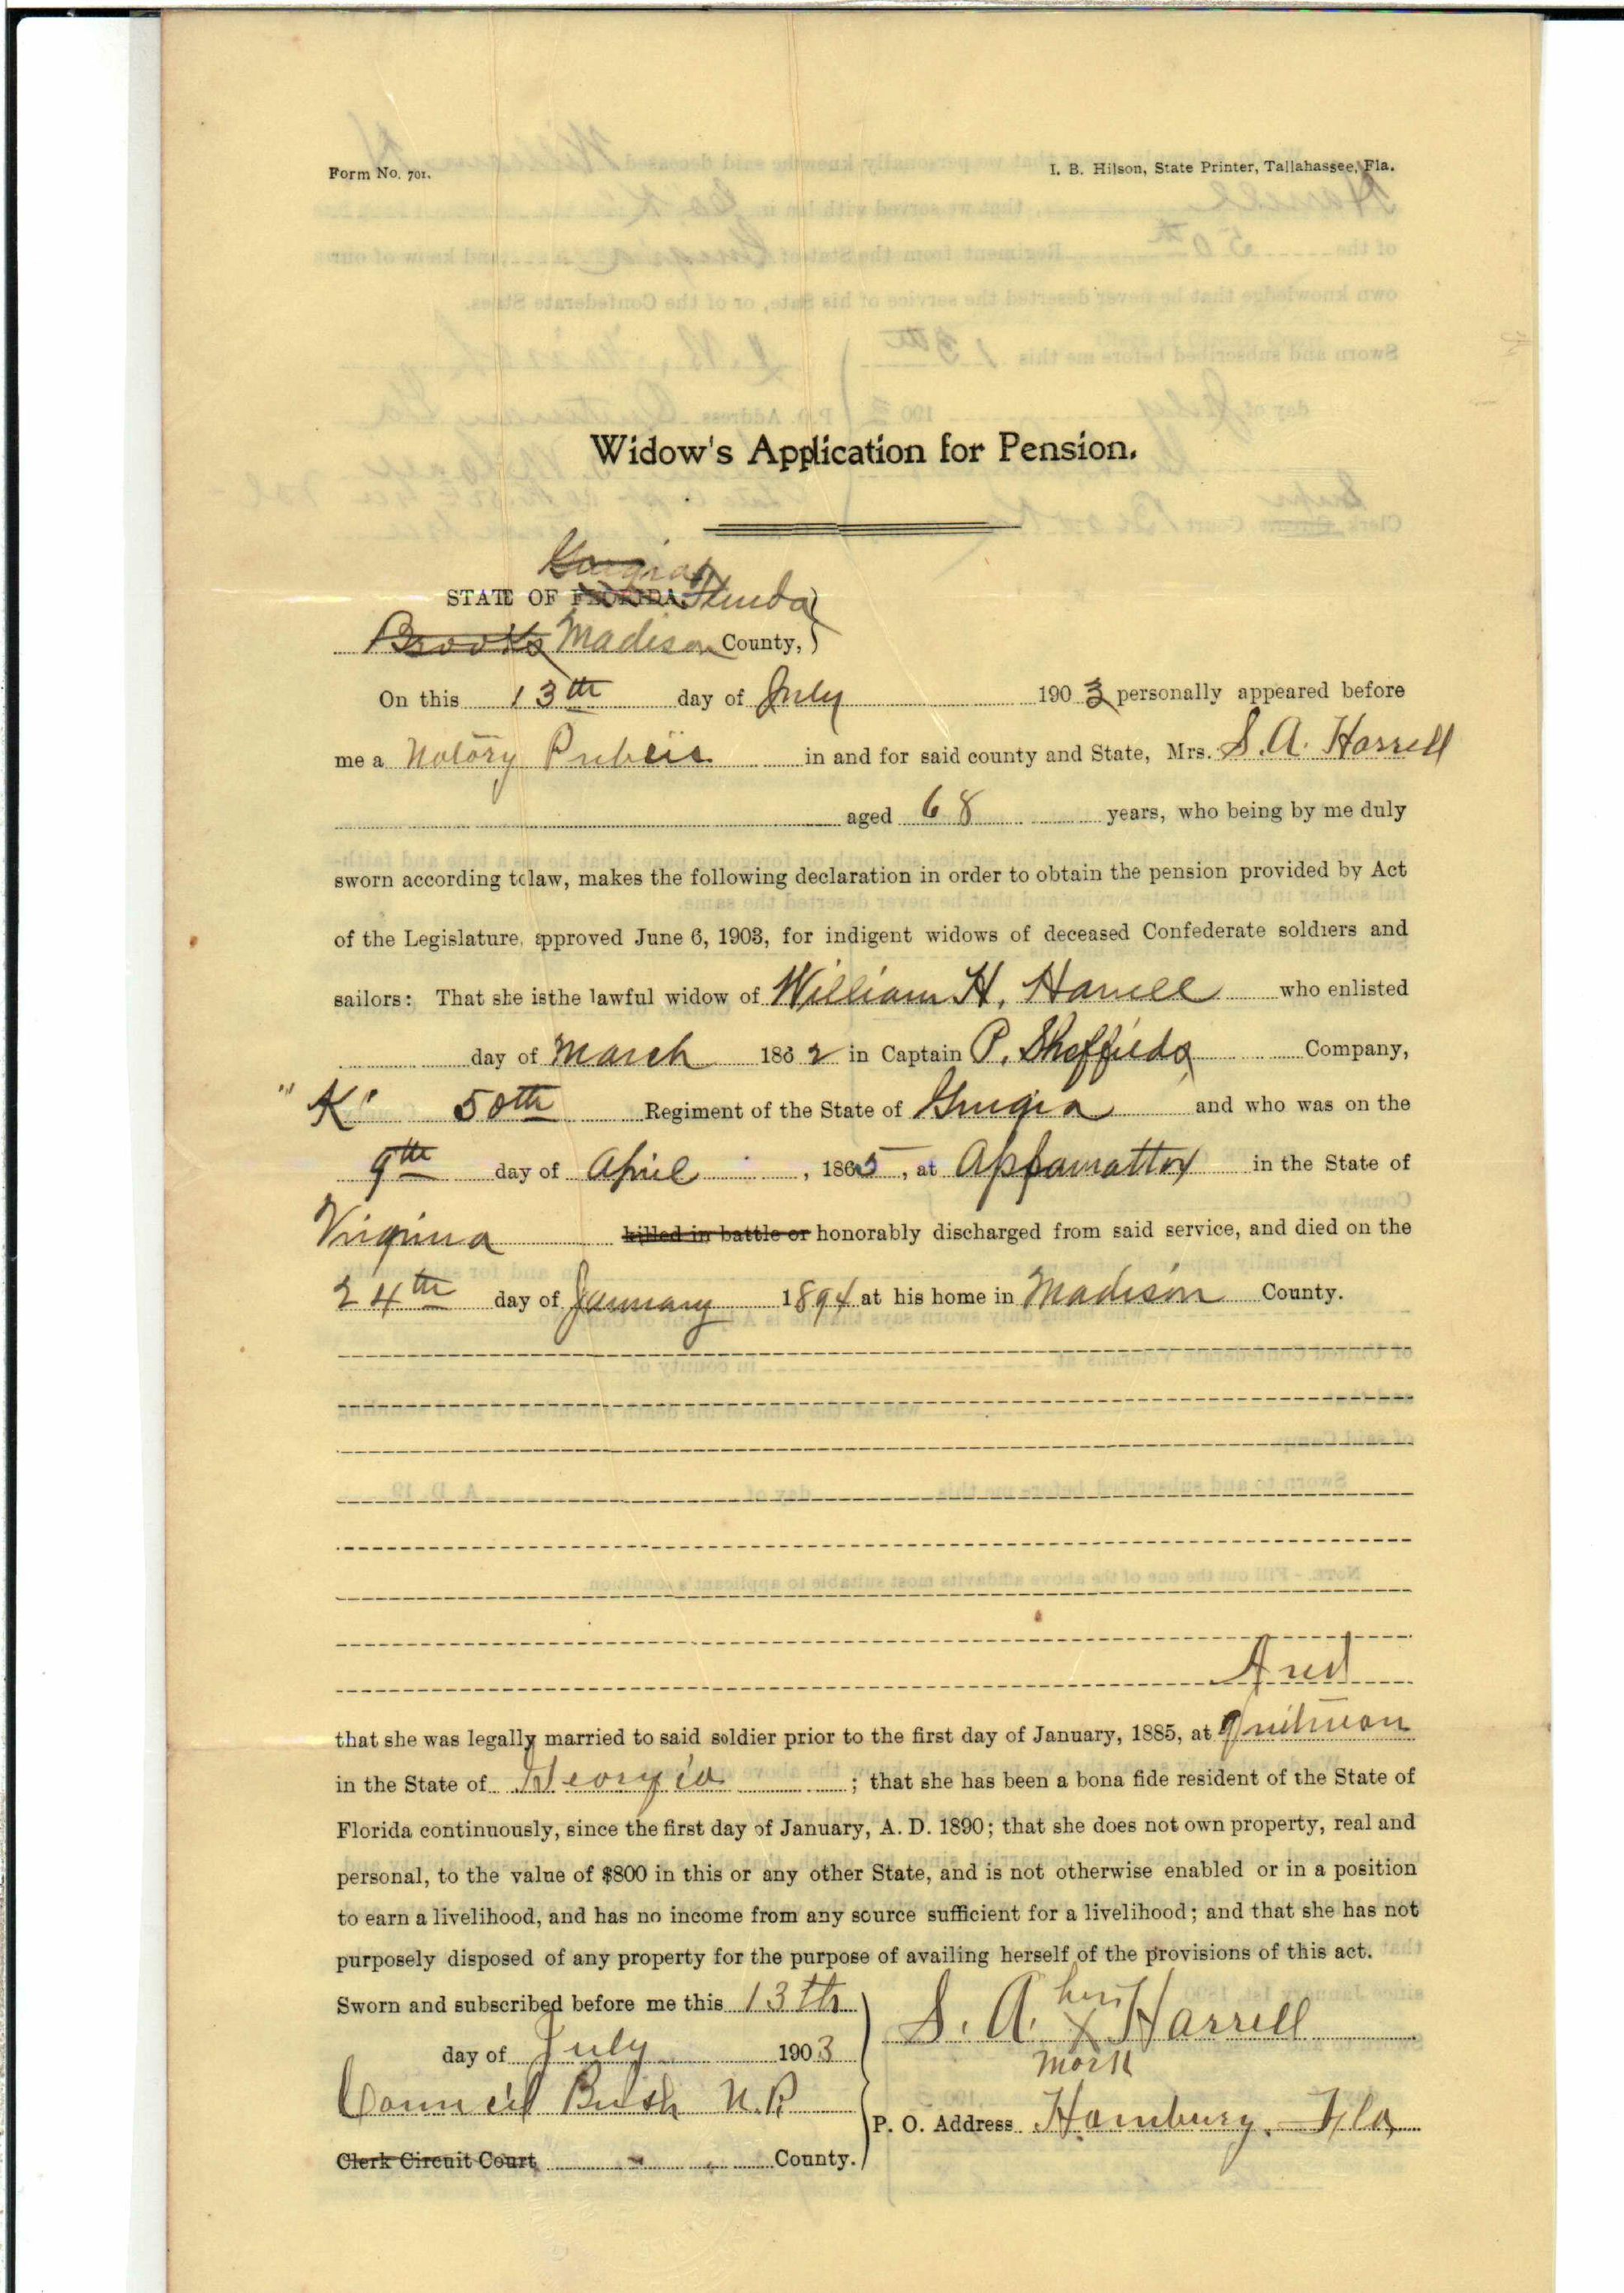 Form No. 701.
I. B. Hilson, State Printer, Tallahassee, Fla.
Widow's Application for Pension.
Georgia
STATE OF FLORIDA, Florida
Brooks Madison County,
On this 13th day of July 1903 personally appeared before
me a Notary Public in and for said county and State, Mrs. S. A. Harrell
aged 68 years, who being by me duly
sworn according to law, makes the following declaration in order to obtain the pension provided by Act
of the Legislature, approved June 6, 1903, for indigent widows of deceased Confederate soldiers and
sailors: That she is the lawful widow of William H. Harrell who enlisted
day of March 1862 in Captain P. Sheffields Company,
"K" 50th Regiment of the State of Georgia and who was on the
9th day of April, 1865, at Appamattox in the State of
Virginia killed in battle or honorably discharged from said service, and died on the
24th day of January 1894 at his home in Madison County.
And
that she was legally married to said soldier prior to the first day of January, 1885, at Quitman
in the State of Georgia; that she has been a bona fide resident of the State of
Florida continuously, since the first day of January, A. D. 1890; that she does not own property, real and
personal, to the value of $800 in this or any other State, and is not otherwise enabled or in a position
to earn a livelihood, and has no income from any source sufficient for a livelihood; and that she has not
purposely disposed of any property for the purpose of availing herself of the provisions of this act.
Sworn and subscribed before me this 13th
day of July 1903
Council Bush N.P.
Clerk Circuit Court County.
her
S. A. X Harrell
mark
P. O. Address Hamburg, Fla